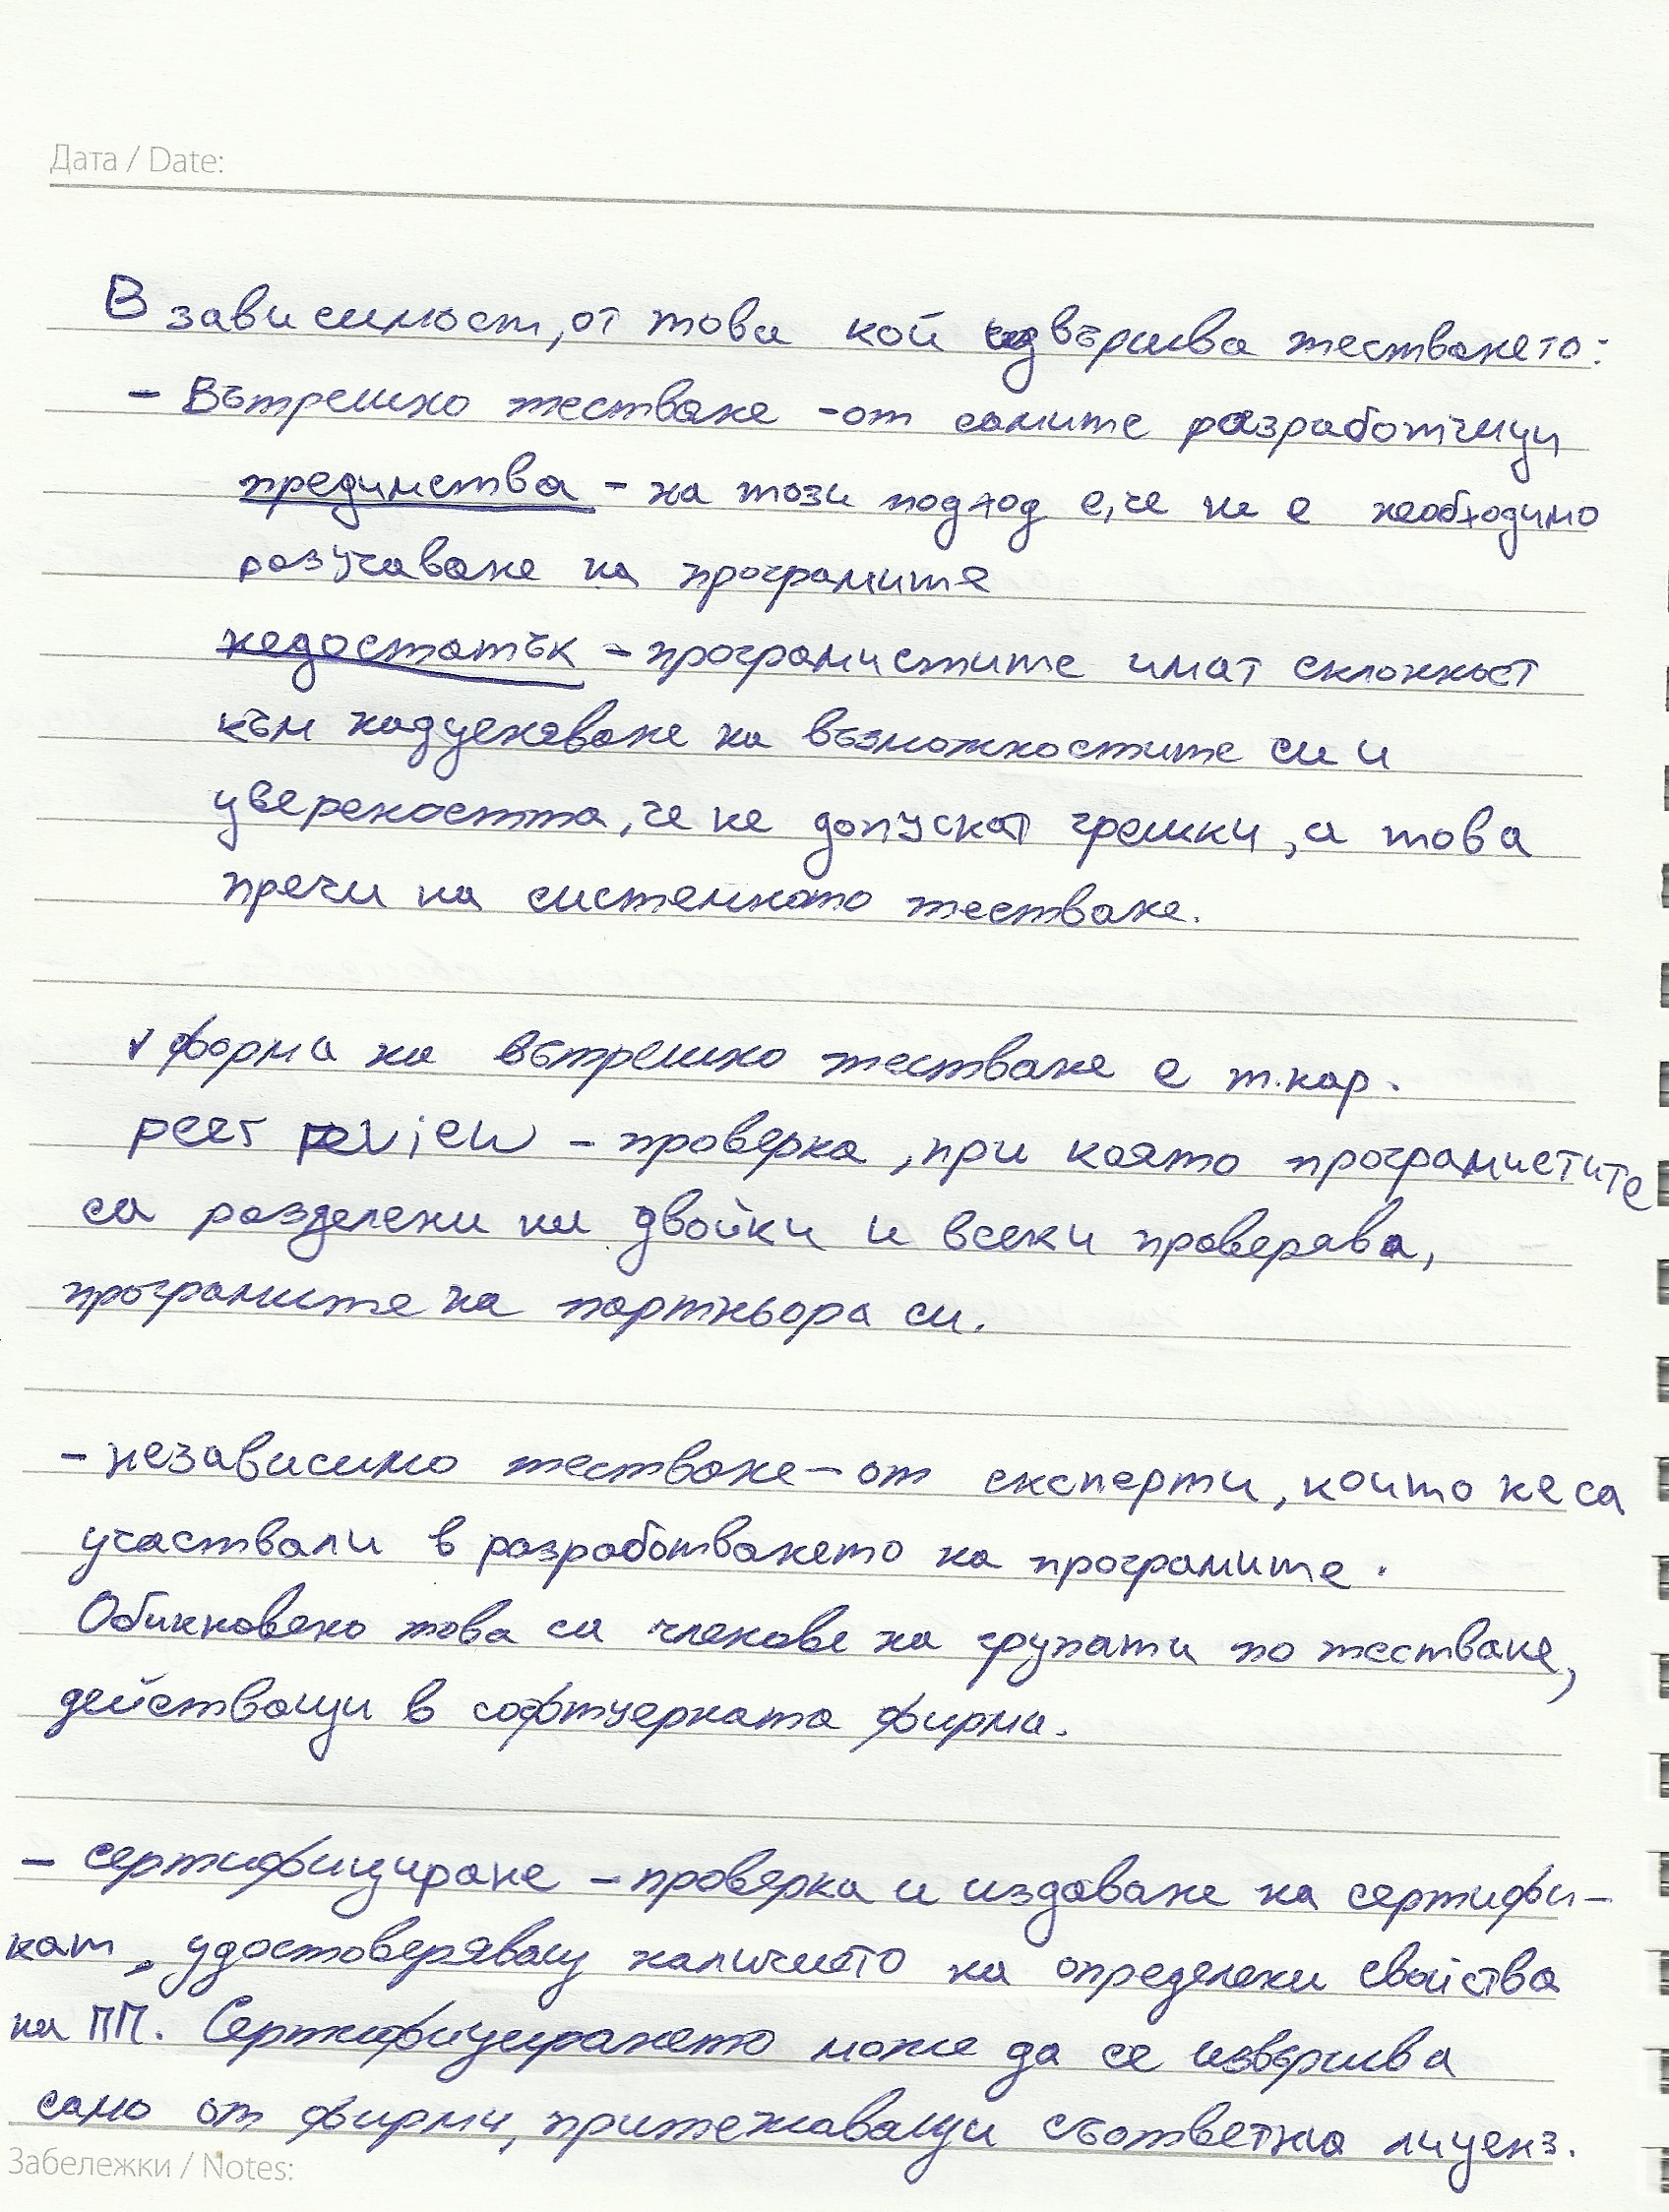 Дата / Date:
В зависимост, от това кой извършва тестването:
- Вътрешно тестване - от самите разработчици
предимства - на този подход е, че не е необходимо
разучаване на програмите
недостатък - програмистите имат склонност
към надценяване на възможностите си и
увереността, че не допускат грешки, а това
пречи на системното тестване.
✓ форма на вътрешно тестване е т.нар.
peer review - проверка, при която програмистите
са разделени на двойки и всеки проверява,
програмите на партньора си.
- независимо тестване - от експерти, които не са
участвали в разработването на програмите.
Обикновено това са членове на групати по тестване,
действащи в софтуерната фирма.
- сертифициране - проверка и издаване на сертифи-
кат, удостоверяващ наличието на определени свойства
на ПП. Сертифицирането може да се извършва
само от фирми, притежаващи съответния лиценз.
Забележки / Notes: